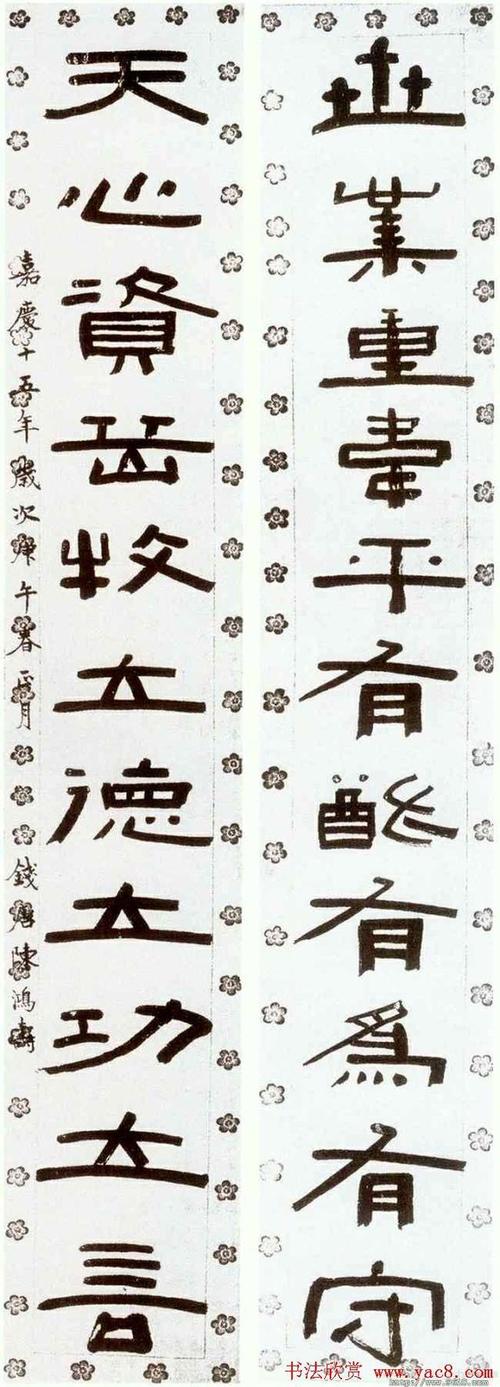 世業重韋平有猷有為有守
天心資岳牧立德立功立言
嘉慶十五年歲次庚午春正月
錢唐陳鴻壽
书法欣赏 www.yac8.com